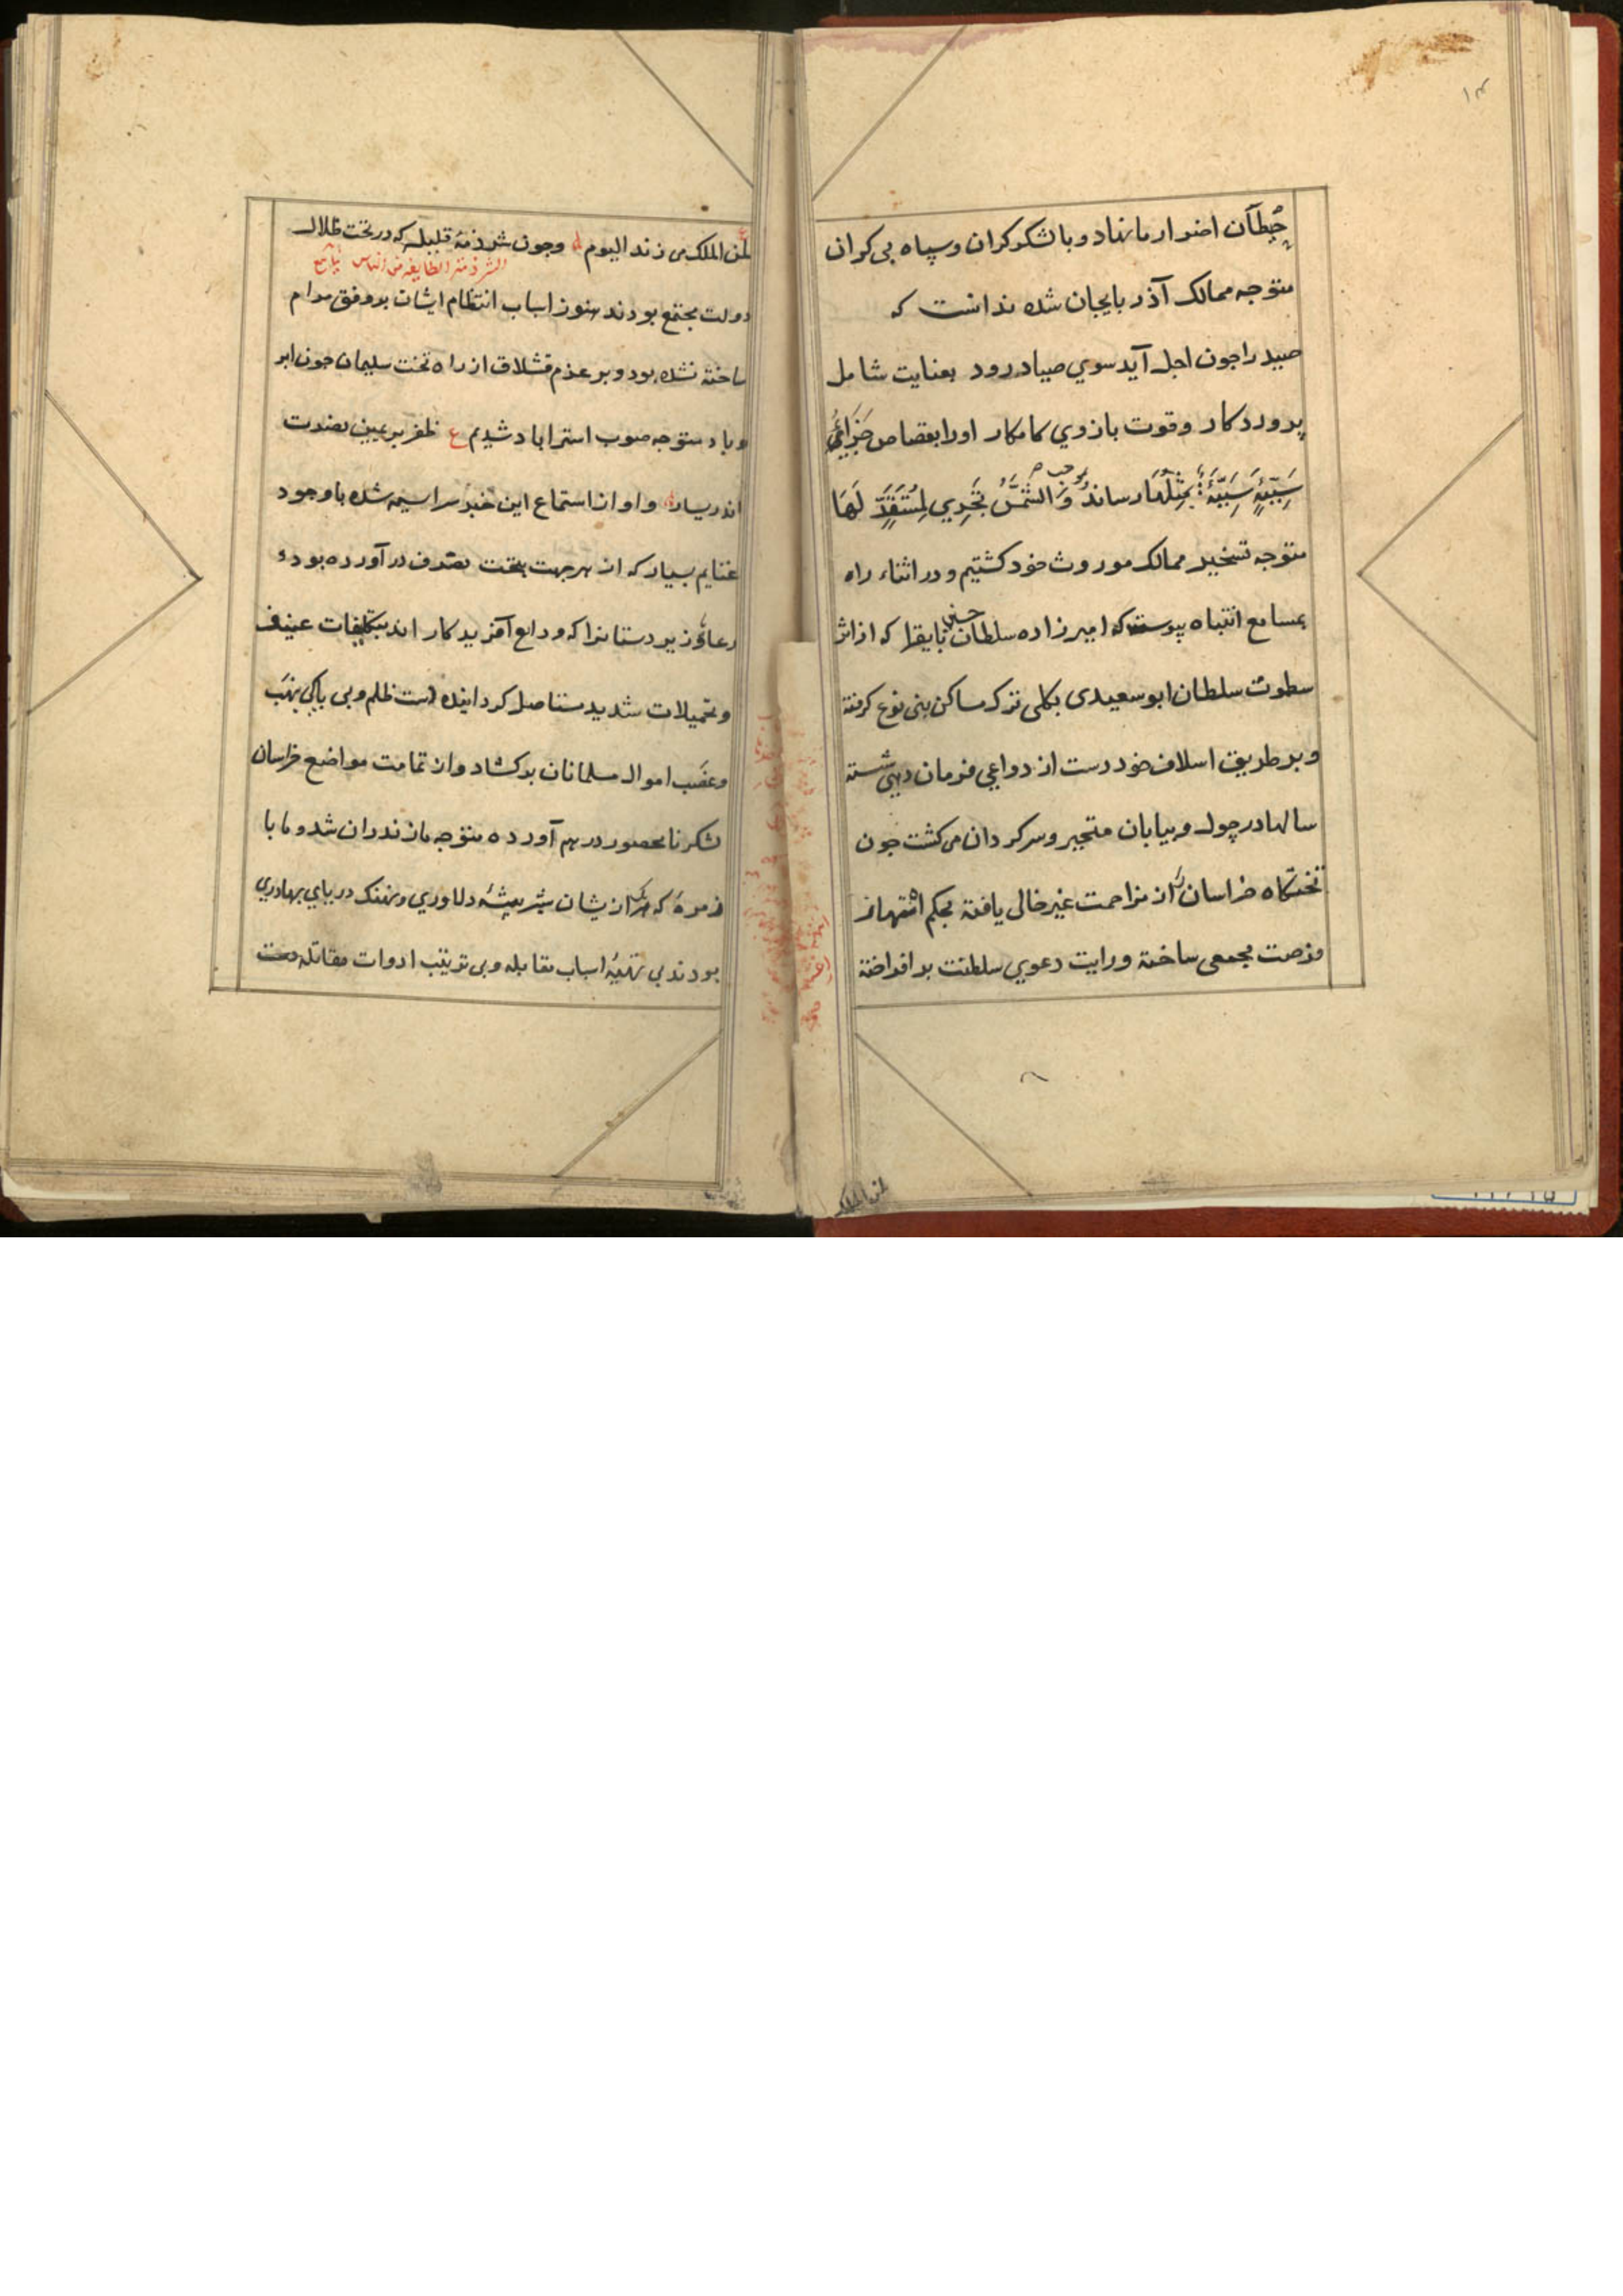 ۱۳
حیطان اضرار ما نهاد و با لشکر کران و سپاه بی کران
متوجه ممالک آذربایجان شده ندانست که
صید را جون اجل آید سوی صیاد رود بعنایت شامل
پروردکار و قوت بازوی کامکار او را بقصاص جَزَاءُ
سَیِّئَةٍ سَیِّئَةٌ بِمِثْلِهَا رساند و بر حسب وَالشَّمْسُ تَجْرِي لِمُسْتَقَرٍّ لَهَا
متوجه تسخیر ممالک موروث خود کشتیم و در اثناء راه
بمسامع انتباه پیوست که امیرزاده سلطان حسین بایقرا که از اثر
سطوت سلطان ابوسعیدی بکلی ترک مساکن بنی نوع کرفته
و بر طریق اسلاف خود دست از دواعی فرمان دهی شسته
سالها در چول و بیابان متحیر و سرکردان می کشت جون
تختکاه خراسان را از مزاحمت غیر خالی یافته بحکم انتهاز
فرصت مجمعی ساخته و رایت دعوی سلطنت برافراخته
لمن الملک
لمن الملک می زند الیوم و جون شرذمهٔ قلیله که در تحت ظلال
الشرذمة الطایفه من الناس
دولت مجتمع بودند هنوز اسباب انتظام ایشان بر وفق مرام
ساخته نشده بود و بر عزم قشلاق از راه تخت سلیمان جون ابر
و باد متوجه صوب استراباد شدیم ع ظفر بر یمین نصرت
اندر یسار و او از استماع این خبر سراسیمه شده با وجود
غنایم بسیار که از هر جهت بتحت تصرف درآورده بود
رعایا و زیردستانرا که ودایع آفریدکار اند بتکلیفات عنیف
و تحمیلات شدید مستاصل کردانیده دست ظلم و بی باکی بنهب
و غصب اموال مسلمانان برکشاد و از تمامت مواضع خراسان
لشکر نامحصور در هم آورده متوجه مازندران شد و ما با
زمرهٔ که هر یک ازیشان شیر بیشهٔ دلاوری و نهنک دریای بهادری
بودند بی تهیهٔ اسباب مقابله و بی ترتیب ادوات مقاتله دست